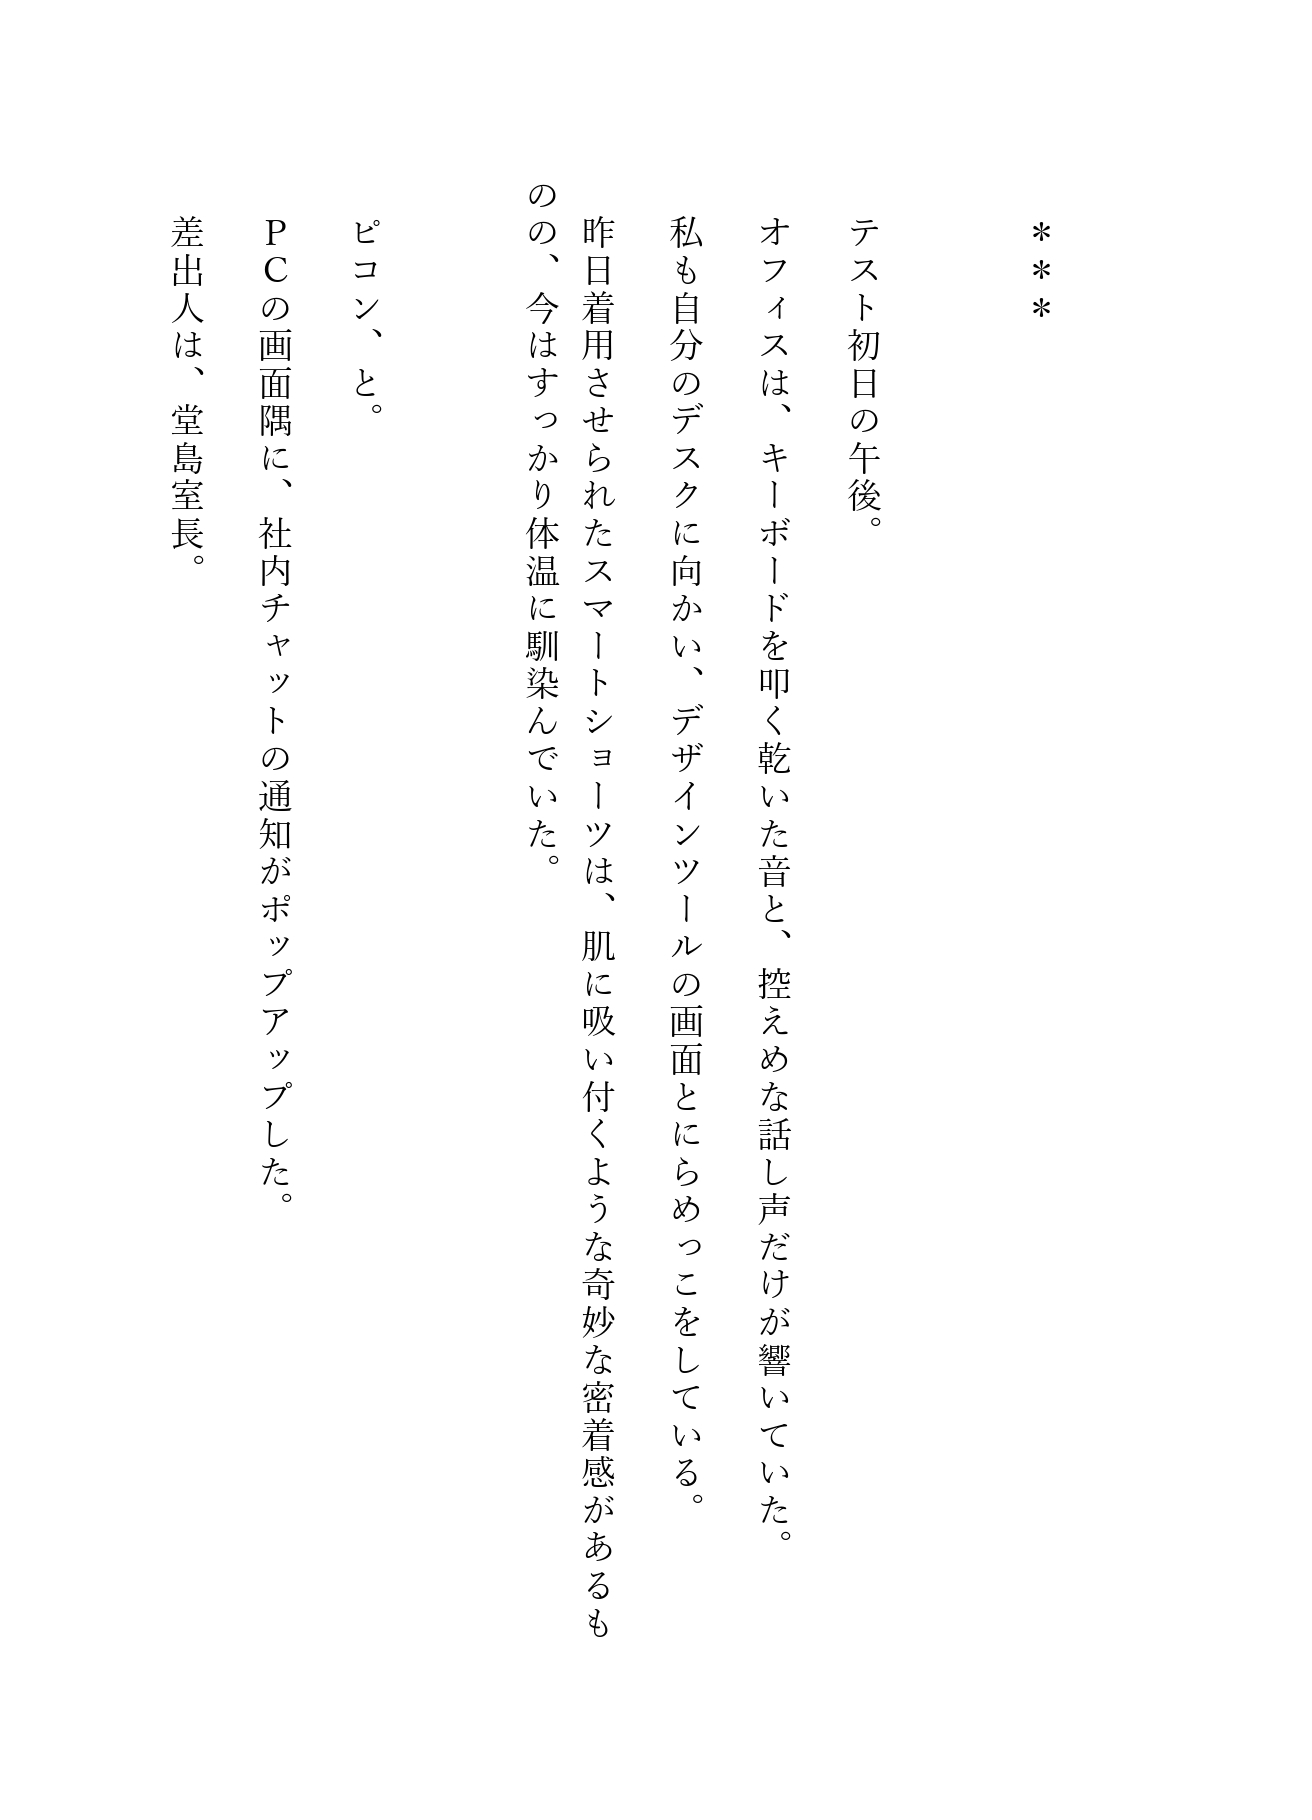 ＊＊＊
テスト初日の午後。
オフィスは、キーボードを叩く乾いた音と、控えめな話し声だけが響いていた。
私も自分のデスクに向かい、デザインツールの画面とにらめっこをしている。
昨日着用させられたスマートショーツは、肌に吸い付くような奇妙な密着感があるも
のの、今はすっかり体温に馴染んでいた。
ピコン、と。
ＰＣの画面隅に、社内チャットの通知がポップアップした。
差出人は、堂島室長。